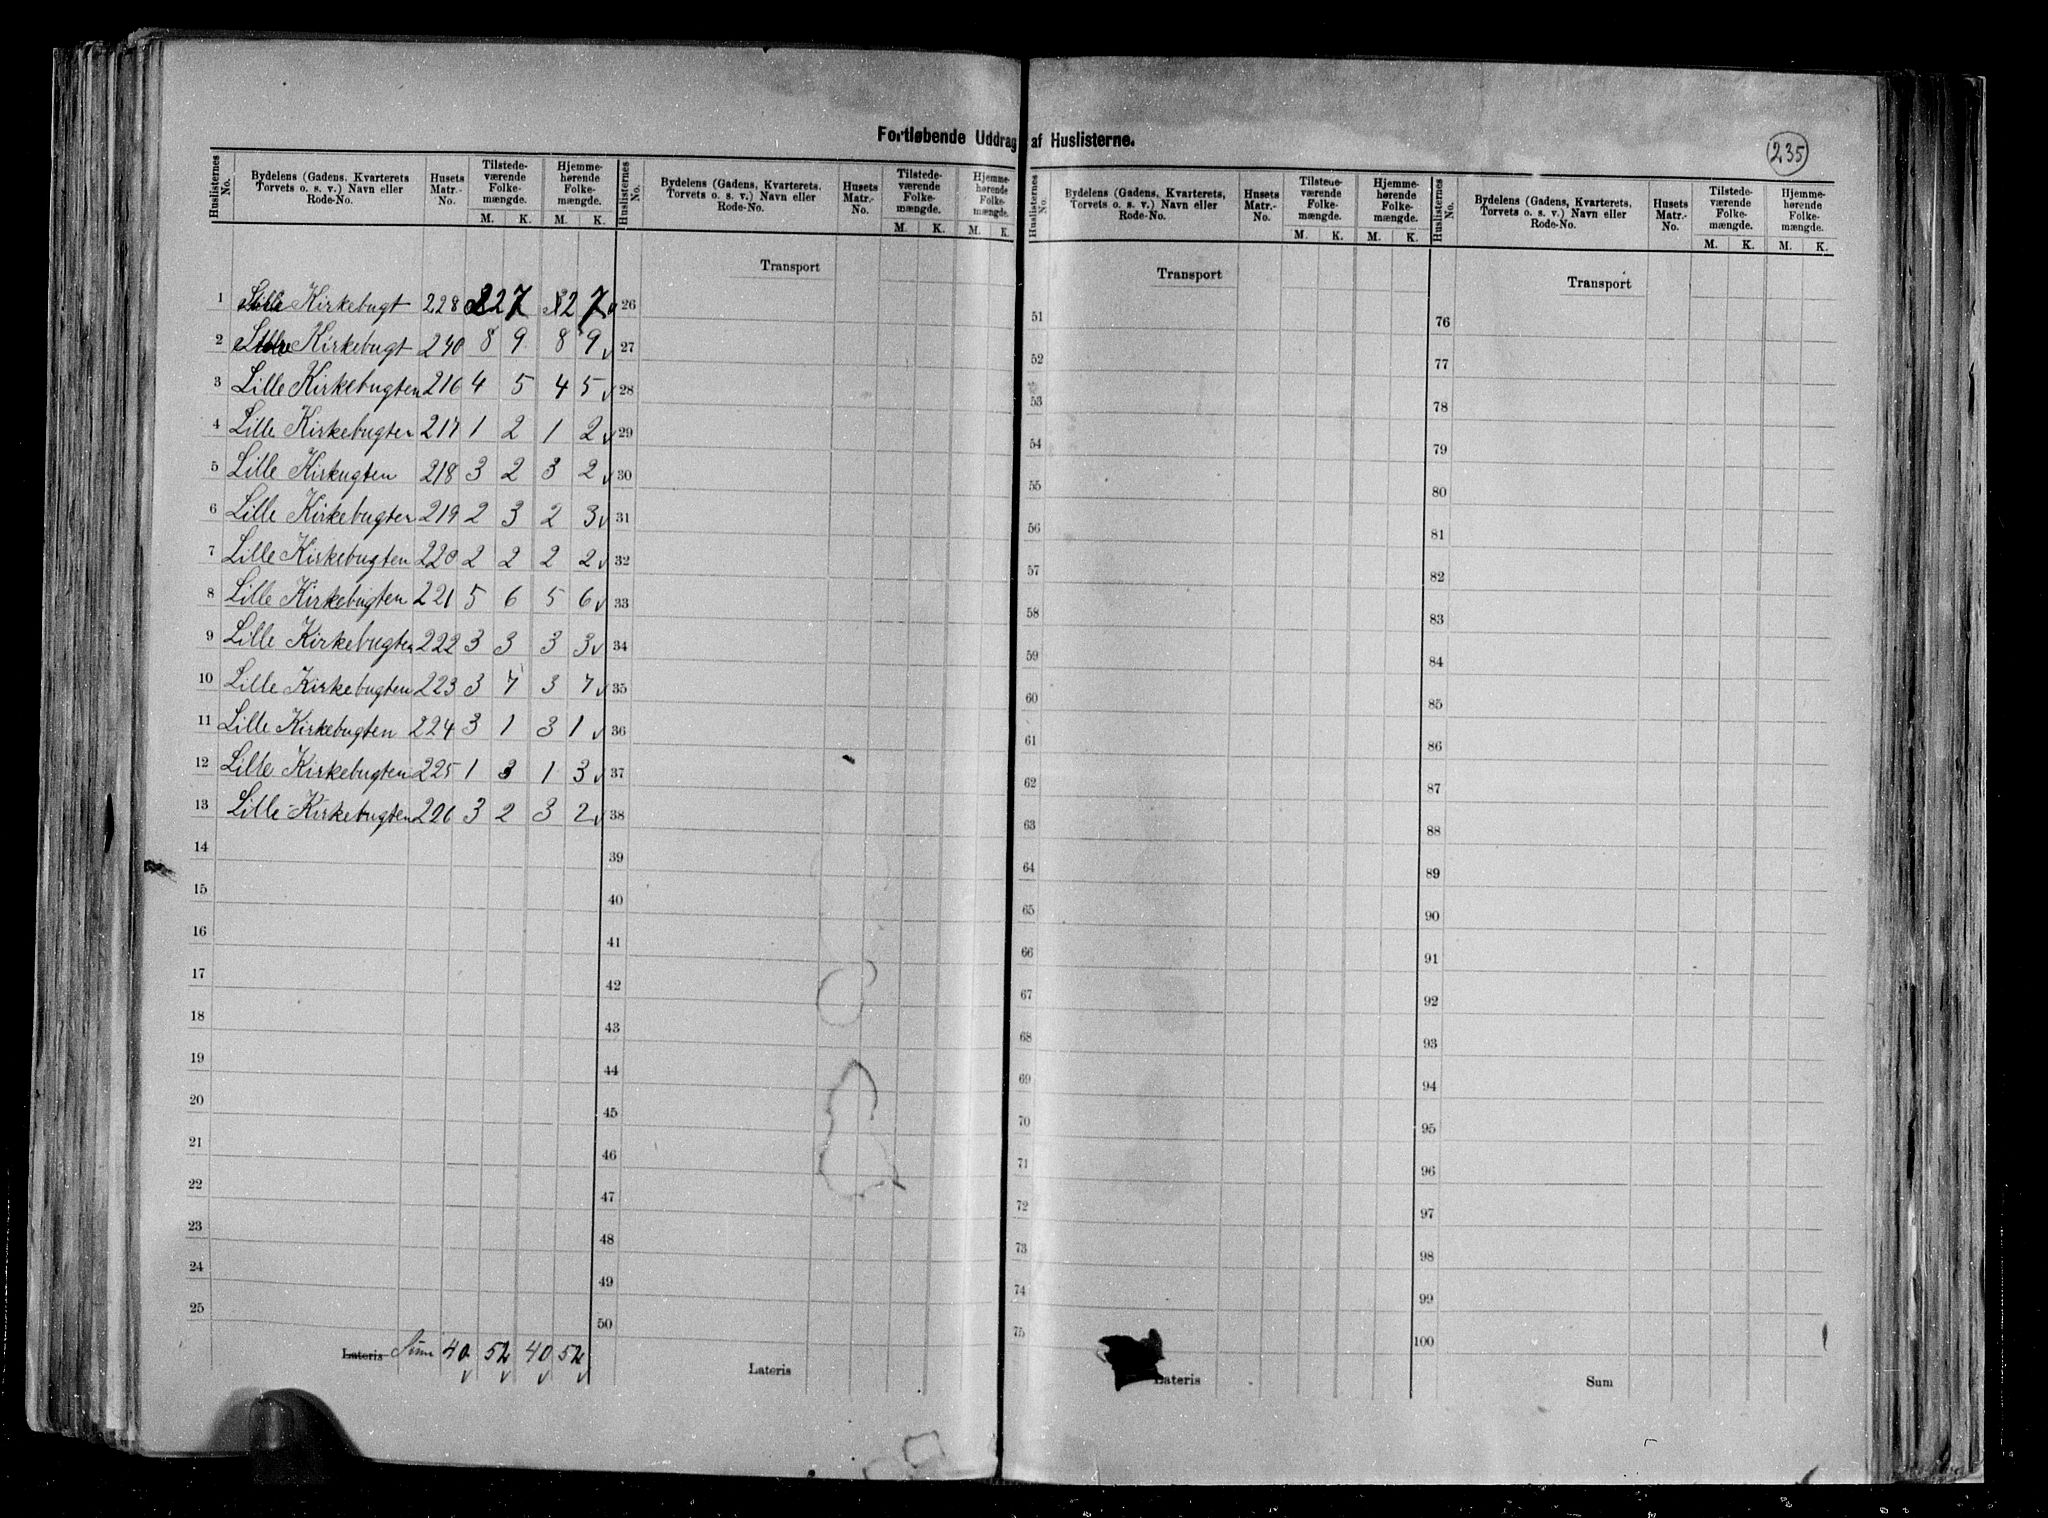 Fortløbende Uddrag af Huslisterne.
235
Huslisternes No. Bydelens (Gadens, Kvarterets Torvets o. s. v.) Navn eller Rode-No. Husets Matr.-No. Tilstede-værende Folke-mængde. M. K. Hjemme-hørende Folke-mængde. M. K.
Huslisternes No. Bydelens (Gadens, Kvarterets, Torvets o. s. v.) Navn eller Rode-No. Husets Matr.-No. Tilstede-værende Folke-mængde. M. K. Hjemme-hørende Folke-mængde. M. K.
Huslisternes No. Bydelens (Gadens, Kvarterets, Torvets o. s. v.) Navn eller Rode-No. Husets Matr.-No. Tilstede-værende Folke-mængde. M. K. Hjemme-hørende Folke-mængde. M. K.
Huslisternes No. Bydelens (Gadens, Kvarterets, Torvets o. s. v.) Navn eller Rode-No. Husets Matr.-No. Tilstede-værende Folke-mængde. M. K. Hjemme-hørende Folke-mængde. M. K.
1 Kirkebugt 228 2 7 2 7
2 Kirkebugt 240 8 9 8 9
3 Lille Kirkebugten 216 4 5 4 5
4 Lille Kirkebugten 217 1 2 1 2
5 Lille Kirkugten 218 3 2 3 2
6 Lille Kirkebugten 219 2 3 2 3
7 Lille Kirkebugten 220 2 2 2 2
8 Lille Kirkebugten 221 5 6 5 6
9 Lille Kirkebugten 222 3 3 3 3
10 Lille Kirkebugten 223 3 7 3 7
11 Lille Kirkebugten 224 3 1 3 1
12 Lille Kirkebugten 225 1 3 1 3
13 Lille Kirkebugten 226 3 2 3 2
14
15
16
17
18
19
20
21
22
23
24
25
Lateris Sum 40 52 40 52
Transport
26
27
28
29
30
31
32
33
34
35
36
37
38
39
40
41
42
43
44
45
46
47
48
49
50
Lateris
Transport
51
52
53
54
55
56
57
58
59
60
61
62
63
64
65
66
67
68
69
70
71
72
73
74
75
Lateris
Transport
76
77
78
79
80
81
82
83
84
85
86
87
88
89
90
91
92
93
94
95
96
97
98
99
100
Sum